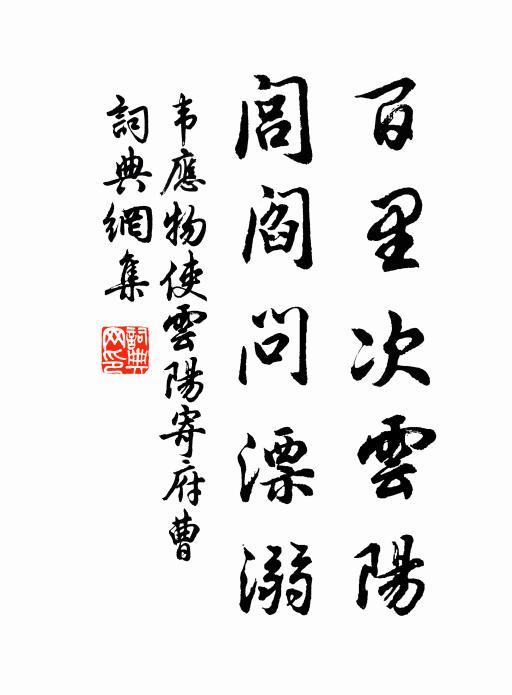 百里次雲陽
閭閻問漂溺
韦應物使雲陽寄府曹
詞典網集
詞典网印